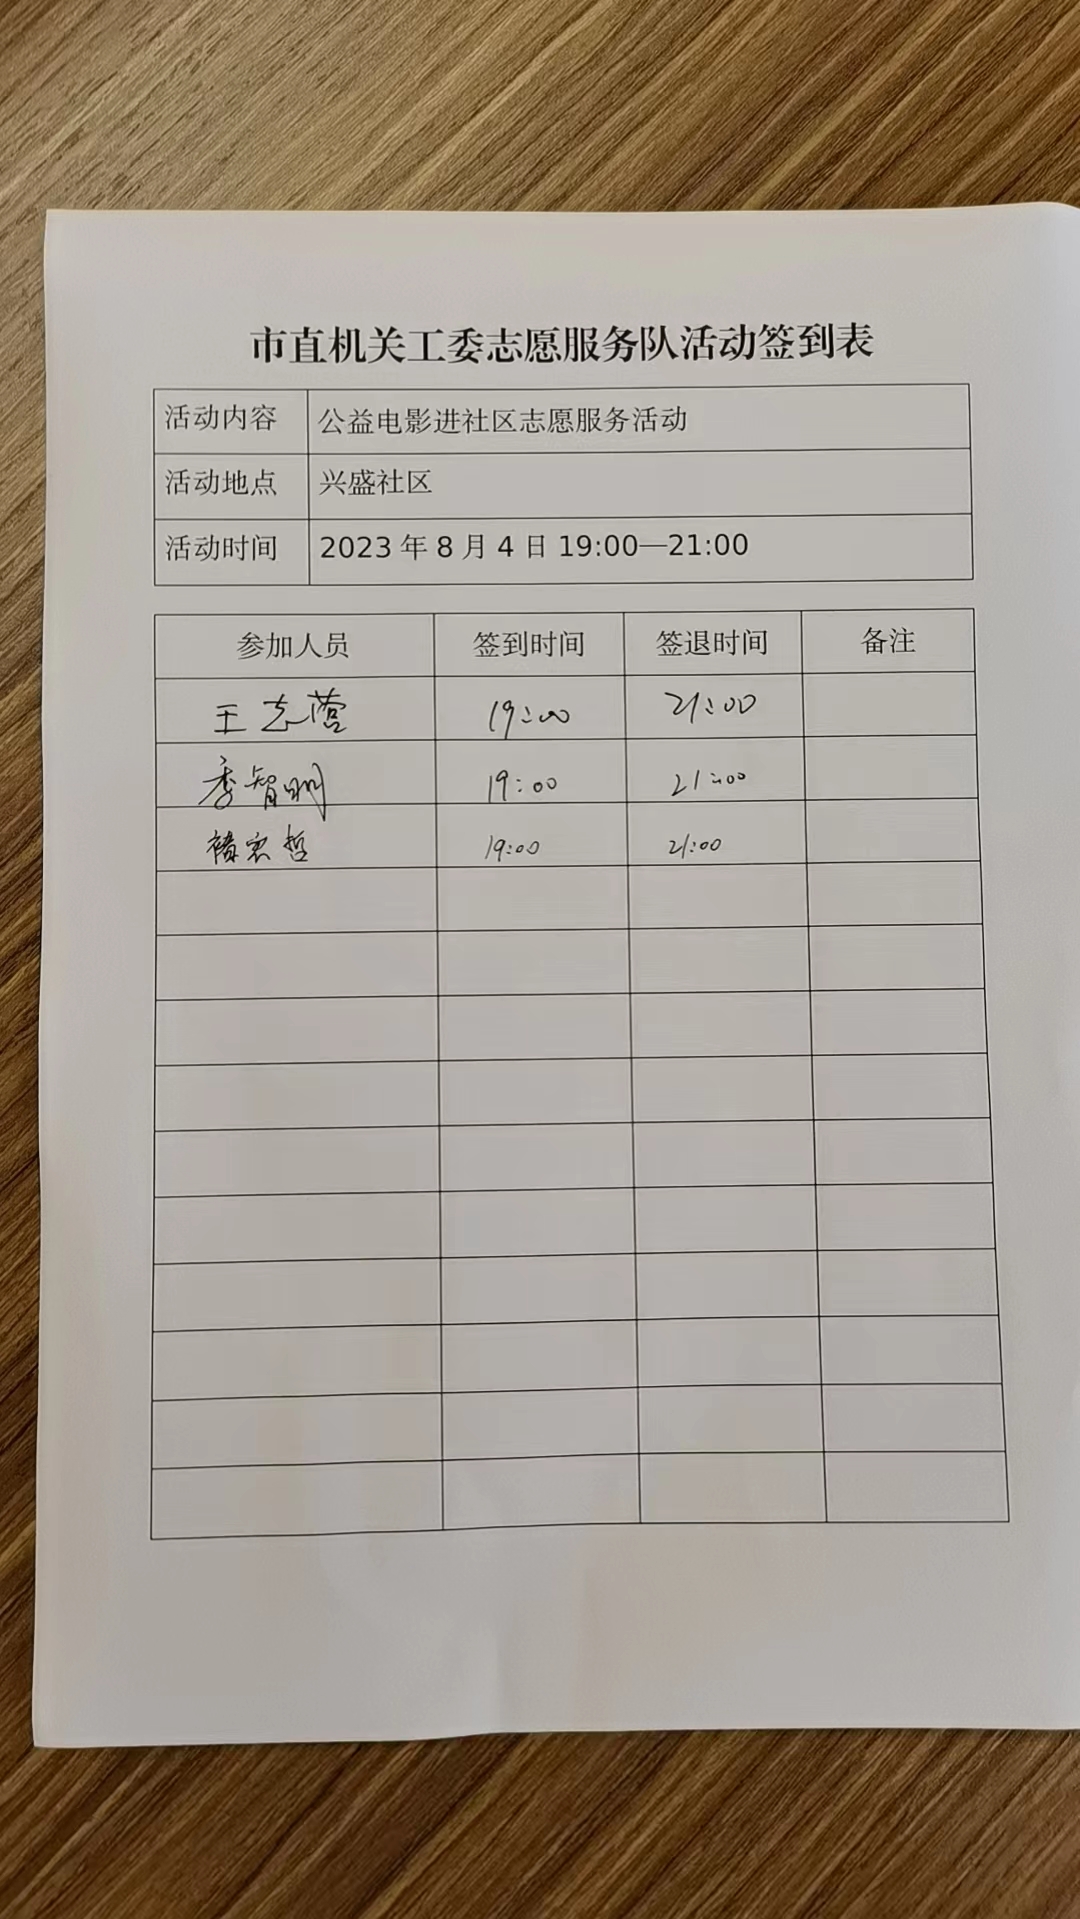 市直机关工委志愿服务队活动签到表
活动内容 公益电影进社区志愿服务活动
活动地点 兴盛社区
活动时间 2023 年 8 月 4 日 19:00—21:00
参加人员 签到时间 签退时间 备注
王志莹 19:00 21:00
季智明 19:00 21:00
褚宏哲 19:00 21:00